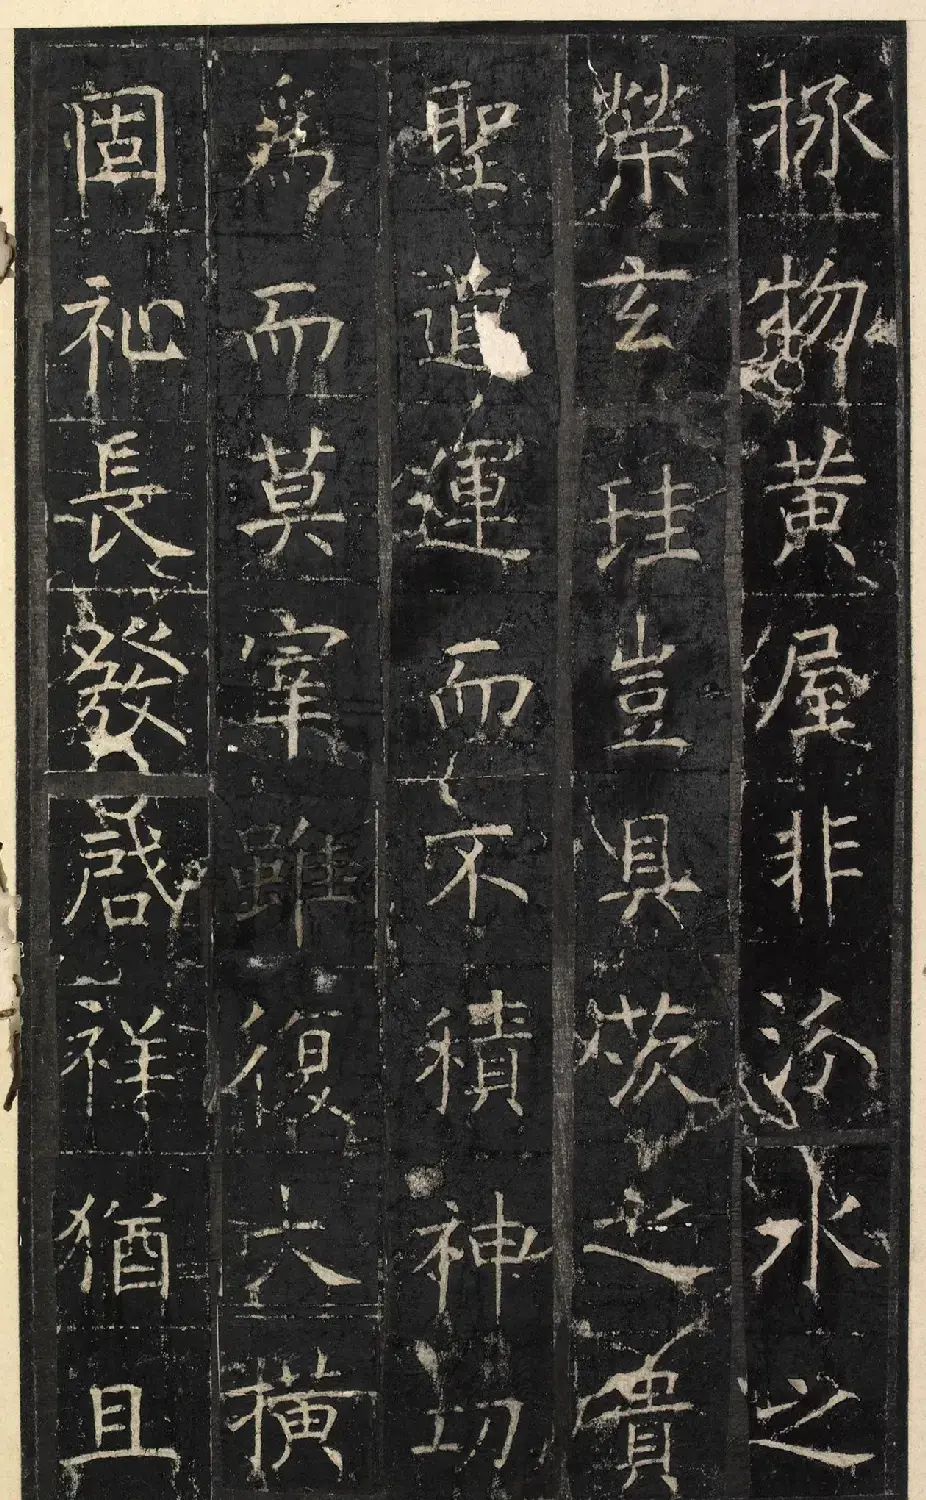 拯物黄屋非汾水之
榮玄珪豈具茨之貴
聖道運而不積神功
為而莫宰雖復大横
固祉長發祥猶且